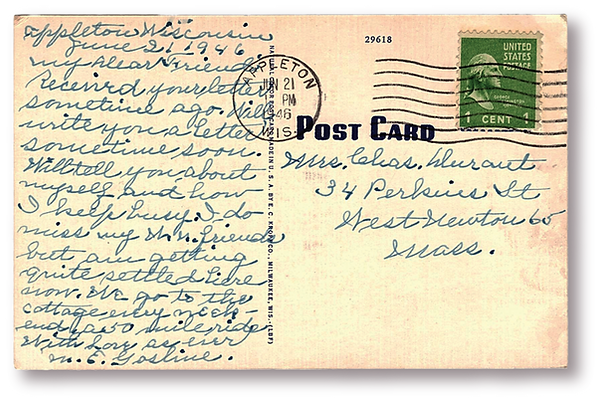 Appleton Wisconsin
June 21, 1946
My Dear Friend
Received your letter
sometime ago. Will
write you a letter
sometime soon.
Will tell you about
myself and how
I keep busy. I do
miss my friends
but am getting
quite settled here
now. We go to the
cottage every week-
end, a 50 mile ride
With Love as ever
M. E. Gosline.
29618
APPLETON
JUN 21
PM
'46
WIS.
UNITED
STATES
POSTAGE
1 CENT 1
POST CARD
Mrs. Chas. Durant
34 Perkins St
West Newton 65
Mass.
MADE IN U. S. A. BY E. C. KROPP CO., MILWAUKEE, WIS.